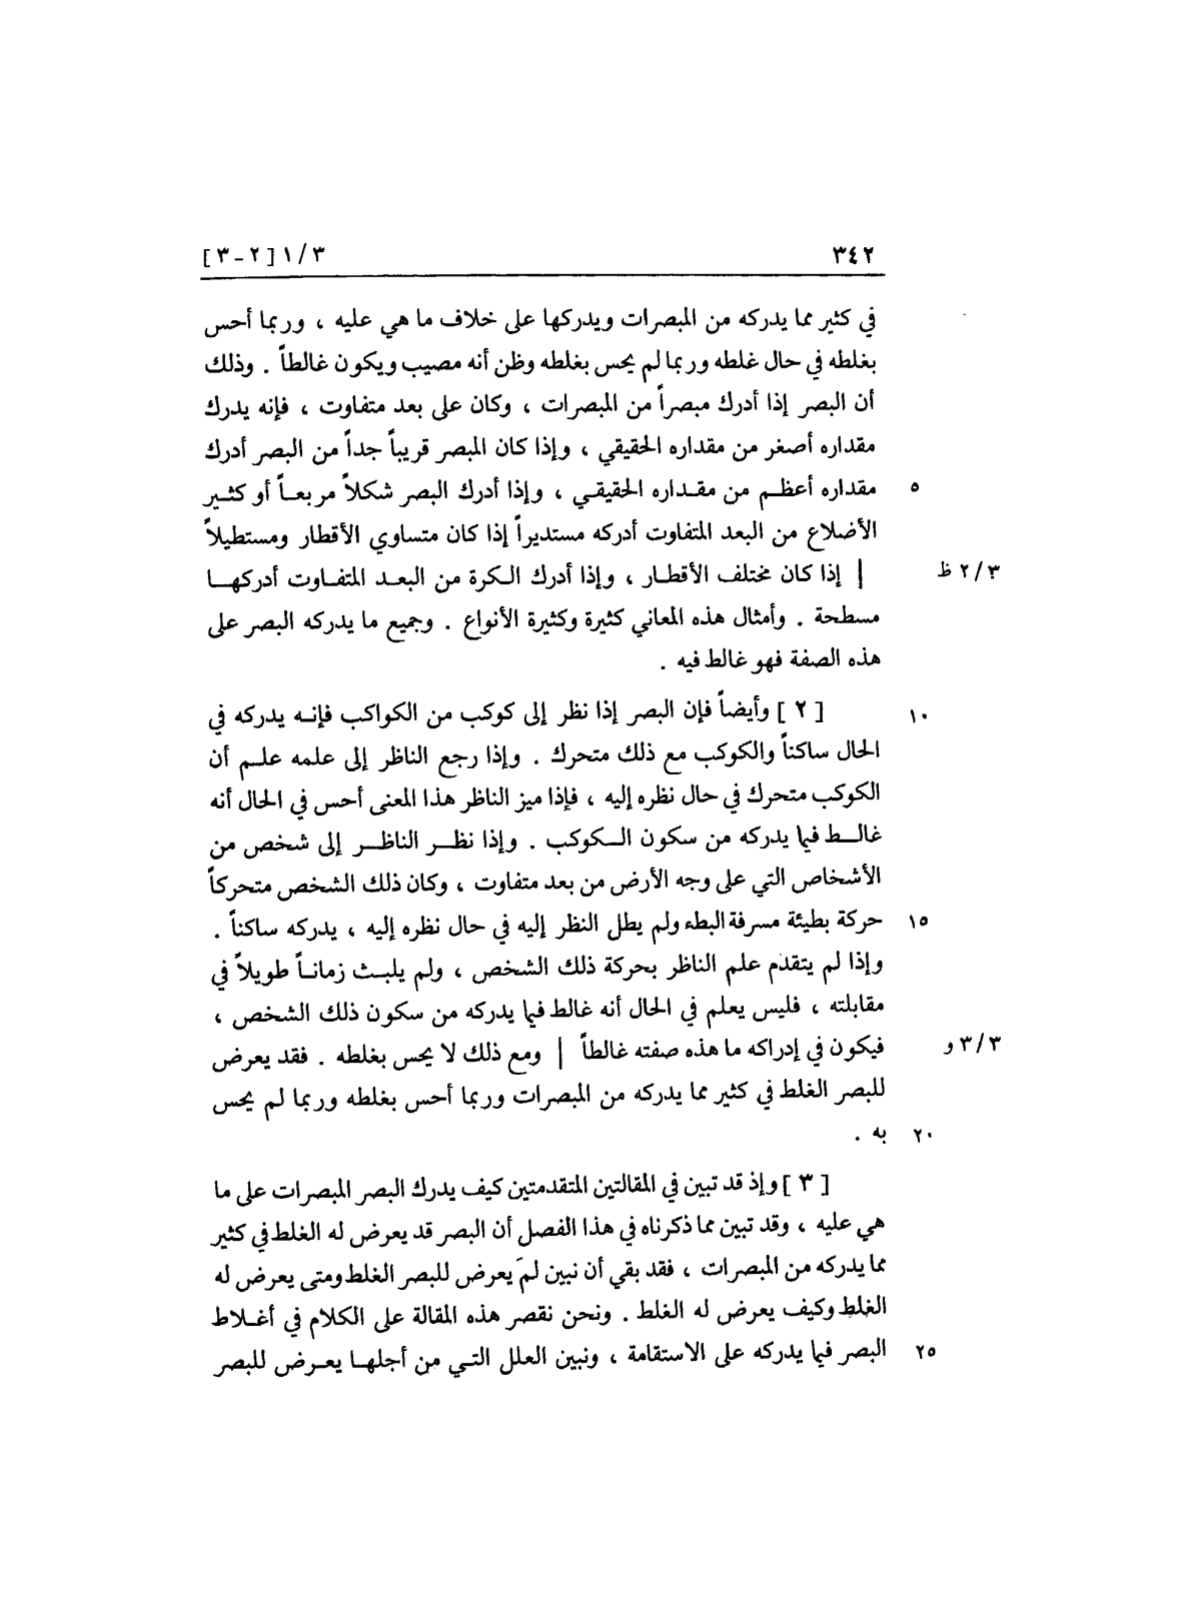 ٣٤٢ ٣/١ [٢-٣]
في كثير مما يدركه من المبصرات ويدركها على خلاف ما هي عليه ، وربما أحس
بغلطه في حال غلطه وربما لم يحس بغلطه وظن أنه مصيب ويكون غالطاً . وذلك
أن البصر إذا أدرك مبصراً من المبصرات ، وكان على بعد متفاوت ، فإنه يدرك
مقداره أصغر من مقداره الحقيقي ، وإذا كان المبصر قريباً جداً من البصر أدرك
٥ مقداره أعظم من مقداره الحقيقي ، وإذا أدرك البصر شكلاً مربعاً أو كثير
الأضلاع من البعد المتفاوت أدركه مستديراً إذا كان متساوي الأقطار ومستطيلاً
٢/٣ ظ | إذا كان مختلف الأقطار ، وإذا أدرك الكرة من البعد المتفاوت أدركها
مسطحة . وأمثال هذه المعاني كثيرة وكثيرة الأنواع . وجميع ما يدركه البصر على
هذه الصفة فهو غالط فيه .
١٠ [ ٢ ] وأيضاً فإن البصر إذا نظر إلى كوكب من الكواكب فإنه يدركه في
الحال ساكناً والكوكب مع ذلك متحرك . وإذا رجع الناظر إلى علمه علم أن
الكوكب متحرك في حال نظره إليه ، فإذا ميز الناظر هذا المعنى أحس في الحال أنه
غالط فيما يدركه من سكون الكوكب . وإذا نظر الناظر إلى شخص من
الأشخاص التي على وجه الأرض من بعد متفاوت ، وكان ذلك الشخص متحركاً
١٥ حركة بطيئة مسرفة البطء ولم يطل النظر إليه في حال نظره إليه ، يدركه ساكناً .
وإذا لم يتقدم علم الناظر بحركة ذلك الشخص ، ولم يلبث زماناً طويلاً في
مقابلته ، فليس يعلم في الحال أنه غالط فيما يدركه من سكون ذلك الشخص ،
٣/٣ و فيكون في إدراكه ما هذه صفته غالطاً | ومع ذلك لا يحس بغلطه . فقد يعرض
للبصر الغلط في كثير مما يدركه من المبصرات وربما أحس بغلطه وربما لم يحس
٢٠ به .
[ ٣ ] وإذ قد تبين في المقالتين المتقدمتين كيف يدرك البصر المبصرات على ما
هي عليه ، وقد تبين مما ذكرناه في هذا الفصل أن البصر قد يعرض له الغلط في كثير
مما يدركه من المبصرات ، فقد بقي أن نبين لمَ يعرض للبصر الغلط ومتى يعرض له
الغلط وكيف يعرض له الغلط . ونحن نقصر هذه المقالة على الكلام في أغلاط
٢٥ البصر فيما يدركه على الاستقامة ، ونبين العلل التي من أجلها يعرض للبصر